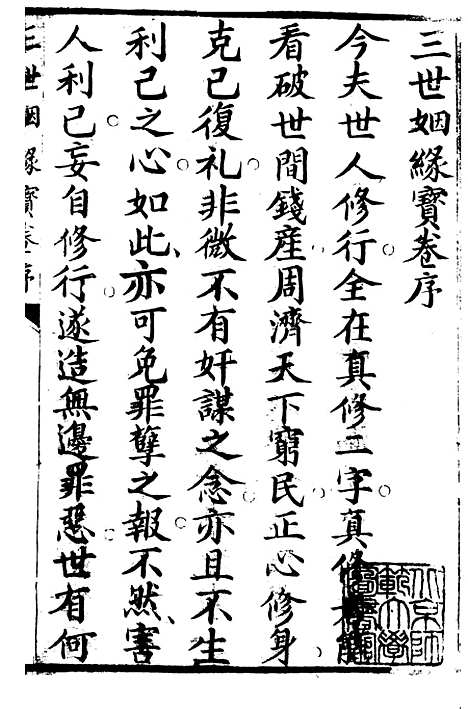 三世姻緣寶卷序
今夫世人修行全在真修二字真修者能
看破世間錢産周濟天下窮民正心修身
克己復礼非微不有奸謀之念亦且不生
利己之心如此亦可免罪孽之報不然害
人利己妄自修行遂造無邊罪惡世有何
三世姻緣寶卷序
北京師範大學圖書館